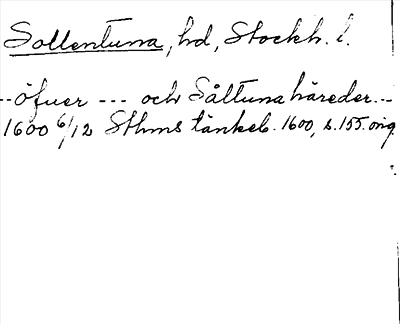 Sollentuna, hd, Stockh. l.
-- öfuer --- och Såltuna häreder --
1600 6/12 Sthms tänkeb. 1600, s. 155. orig.